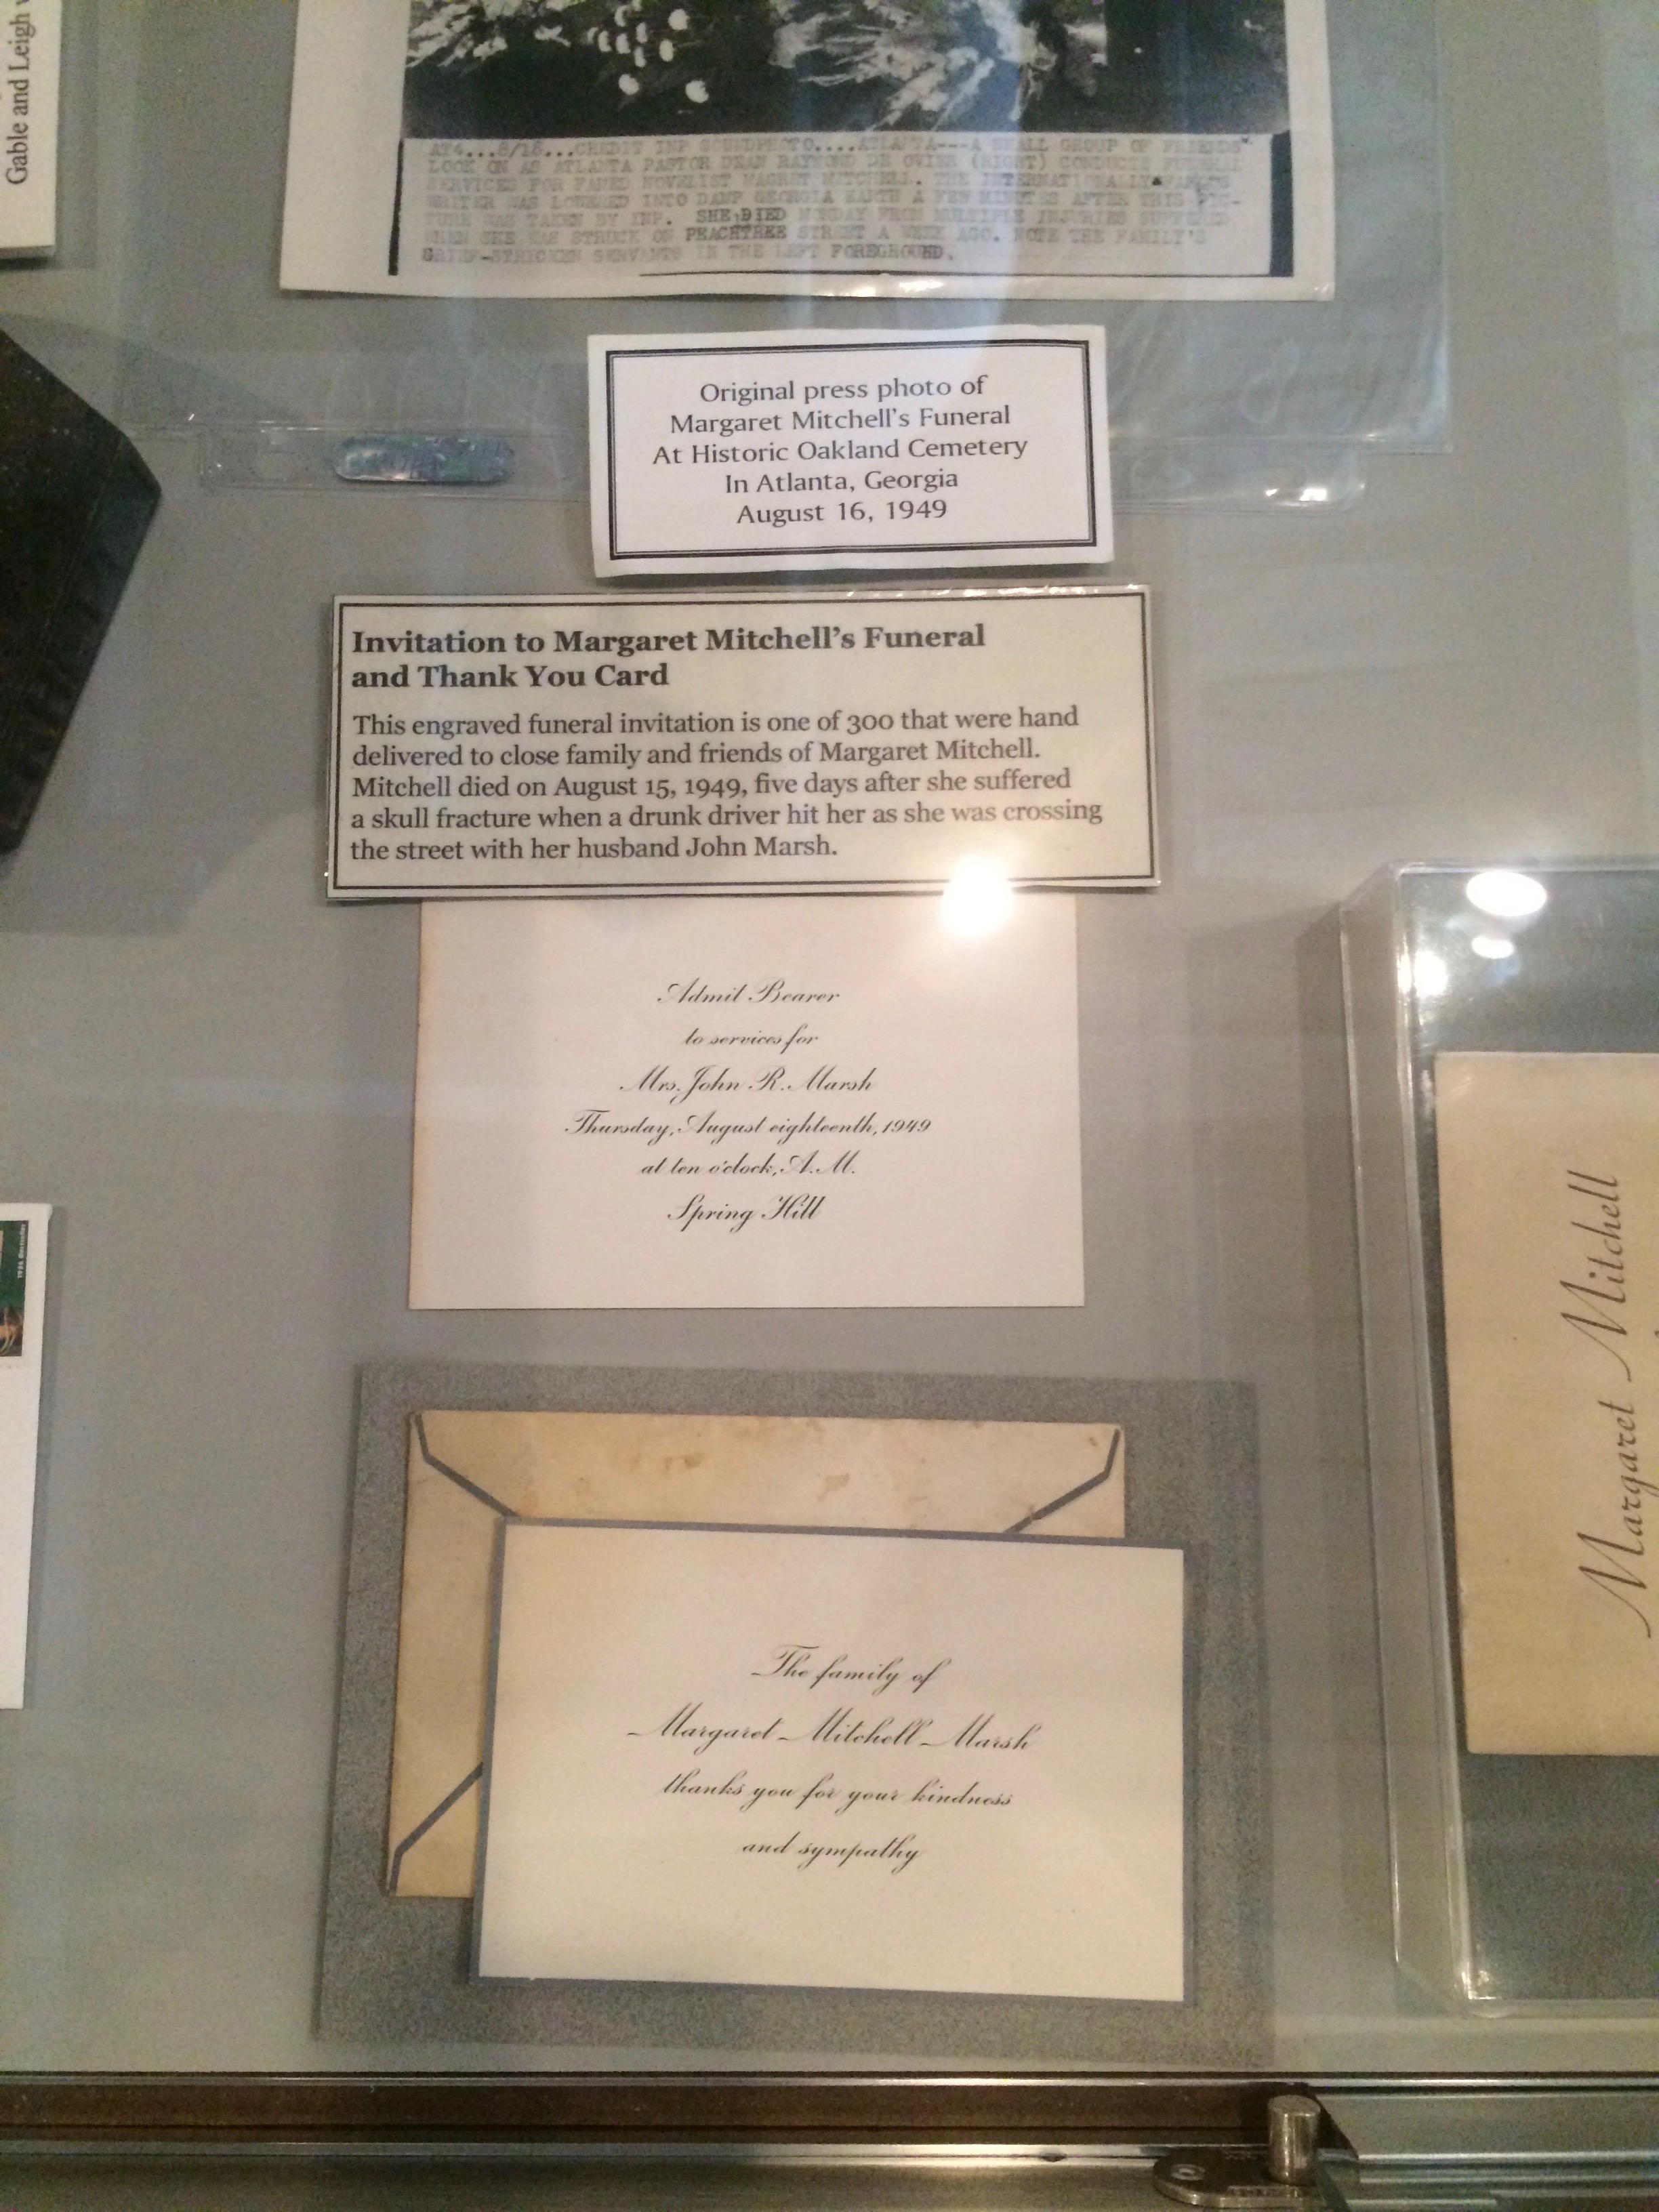 Gable and Leigh
AT4...8/18...CREDIT INP SOUNDPHOTO....ATLANTA---A SMALL GROUP OF FRIENDS
LOOK ON AS ATLANTA PASTOR DEAN RAYMOND DE OVIES (RIGHT) CONDUCTS FUNERAL
SERVICES FOR FAMED NOVELIST MAGRET MITCHELL. THE INTERNATIONALLY FAMOUS
WRITER WAS LOWERED INTO DAMP GEORGIA EARTH A FEW MINUTES AFTER THIS PIC-
TURE WAS TAKEN BY INP. SHE DIED MONDAY FROM MULTIPLE INJURIES SUFFERED
WHEN SHE WAS STRUCK ON PEACHTREE STREET A WEEK AGO. NOTE THE FAMILY'S
GRIEF-STRICKEN SERVANTS IN THE LEFT FOREGROUND.
Original press photo of
Margaret Mitchell's Funeral
At Historic Oakland Cemetery
In Atlanta, Georgia
August 16, 1949
Invitation to Margaret Mitchell's Funeral
and Thank You Card
This engraved funeral invitation is one of 300 that were hand
delivered to close family and friends of Margaret Mitchell.
Mitchell died on August 15, 1949, five days after she suffered
a skull fracture when a drunk driver hit her as she was crossing
the street with her husband John Marsh.
Admit Bearer
to services for
Mrs. John R. Marsh
Thursday, August eighteenth, 1949
at ten o'clock, A. M.
Spring Hill
Margaret Mitchell
The family of
Margaret Mitchell Marsh
thanks you for your kindness
and sympathy